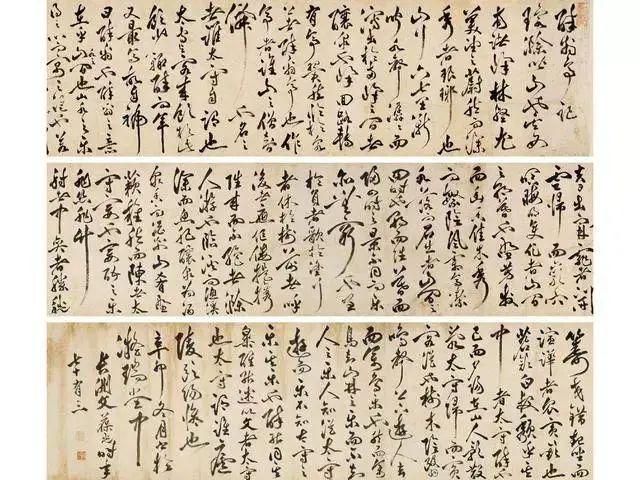 醉翁亭記
環滁皆山也其西
南諸峰林壑尤
美望之蔚然而深
秀者瑯琊也
山行六七里漸
聞水聲潺潺而
瀉出於兩峰之間者
釀泉也峰回路轉
有亭翼然臨於泉
上者醉翁亭也作
亭者誰山之僧智
僊也名之
者誰太守自謂也
太守與客來飲於此
飲少輒醉而年
又最高故自號
曰醉翁也醉翁之意
在乎山水之間也山水之樂
得之心而寓之酒也若
夫日出而林霏開
雲歸而巖穴
暝晦明變化者山間
之朝暮也野芳發
而幽香佳木秀
而繁陰風霜高潔
水落而石出者山間之
四時也朝而往暮而
歸四時之景不同而樂
亦無窮也至
於負者歌於塗行
者休於樹前者呼
後者應傴僂提攜
往來而不絕者滁
人遊也臨谿而漁谿
深而魚肥釀泉為酒
泉香而酒洌山肴野
蔌雜然而前陳者太
守宴也宴酣之樂
非絲非竹
射者中弈者勝觥
籌交錯起坐而
諠譁者眾賓懽也
蒼顏白髮頹然乎其
中者太守醉也
已而夕陽在山人影散
亂太守歸而賓
客從也樹林陰翳
鳴聲上下遊人去
而禽鳥樂也然而禽
鳥知山林之樂而不知
人之樂人知從太守
遊而樂不知太守之
樂其樂也醉能同其
樂醒能述以文者太守
也太守謂誰廬
陵歐陽脩也
辛卯冬月書於
堂中
長洲文 時年
七十有二